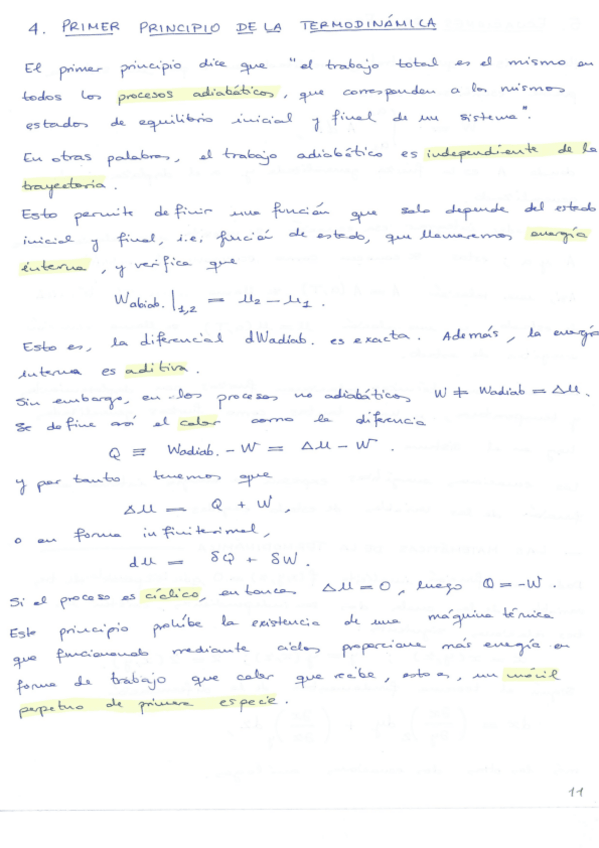 4. PRIMER PRINCIPIO DE LA TERMODINÁMICA
El primer principio dice que "el trabajo total es el mismo en
todos los procesos adiabáticos, que corresponden a los mismos
estados de equilibrio inicial y final de un sistema".
En otras palabras, el trabajo adiabático es independiente de la
trayectoria.
Esto permite definir una función que solo depende del estado
inicial y final, i.e, función de estado, que llamaremos energía
interna, y verifica que
Wabiab.|1,2 = U2 - U1.
Esto es, la diferencial dWadiab. es exacta. Además, la energía
interna es aditiva.
Sin embargo, en los procesos no adiabáticos W ≠ Wadiab = ΔU.
Se define así el calor como la diferencia
Q ≡ Wadiab. - W = ΔU - W.
y por tanto tenemos que
ΔU = Q + W,
o en forma infinitesimal,
dU = δQ + δW.
Si el proceso es cíclico, entonces ΔU = 0, luego Q = -W.
Este principio prohíbe la existencia de una máquina térmica
que funcionando mediante ciclos proporcione más energía en
forma de trabajo que calor que recibe, esto es, un móvil
perpetuo de primera especie.
11